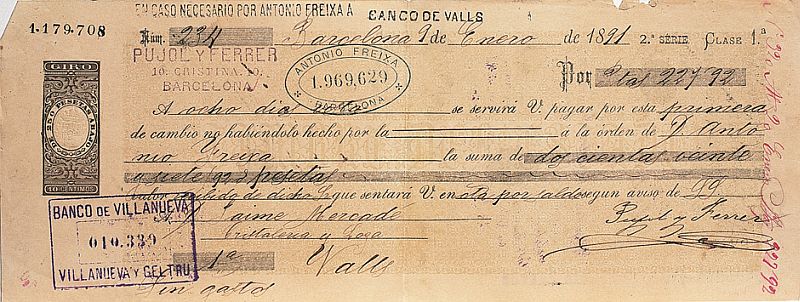 EN CASO NECESARIO POR ANTONIO FREIXA A BANCO DE VALLS
1-179-708
Núm. 234 Barcelona 9 de Enero de 1891 2.ª SÉRIE CLASE 1.ª
PUJOL Y FERRER
10. CRISTINA. 10.
BARCELONA
ANTONIO FREIXA
1.969,629
BARCELONA
GIRO
Por Ptas 227'92
A ocho días se servirá V. pagar por esta primera
de cambio no habiéndolo hecho por la á la órden de D. Anto
nio Freixa la suma de dos cientas veinte
y siete 92 pesetas
Valor recibido de dicho S. que sentará V. en cta por saldo segun aviso de SS
BANCO DE VILLANUEVA
010.339
VILLANUEVA Y GELTRU
10 CENTIMOS
A Jaime Mercadé
Cristaleria y Loza
Pujol y Ferrer
1ª Valls
Sin gastos